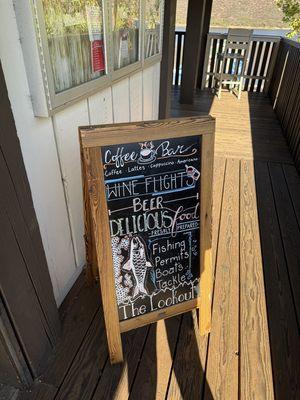 Coffee Bar
Coffee Lattes Cappuccino Americano
WINE FLIGHTS
BEER
DELICIOUS food
FRESHLY PREPARED
Fishing
Permits
Boats
Tackle
The Lookout
COFFEE WINE BEER